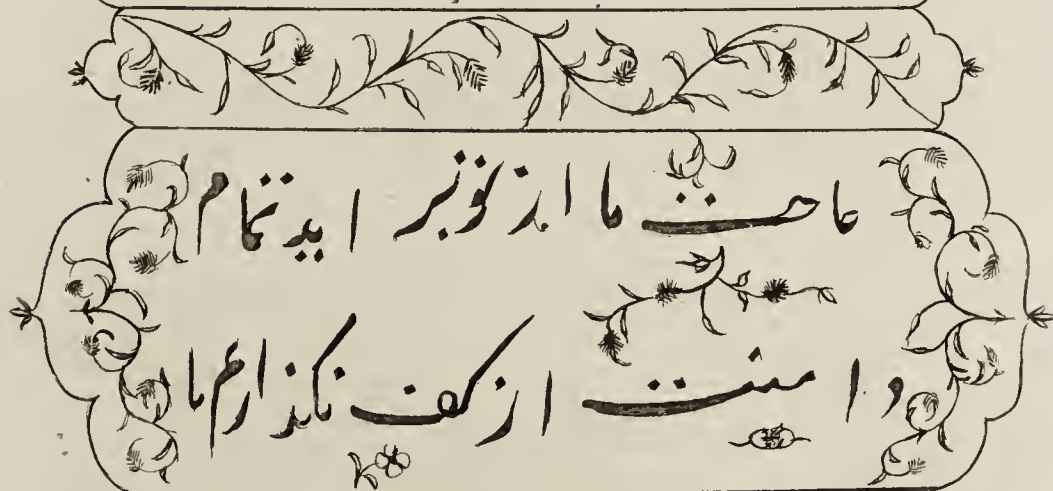 حاجت ما از تو بر اید تمام
دامنت از کف نکذاریم ما